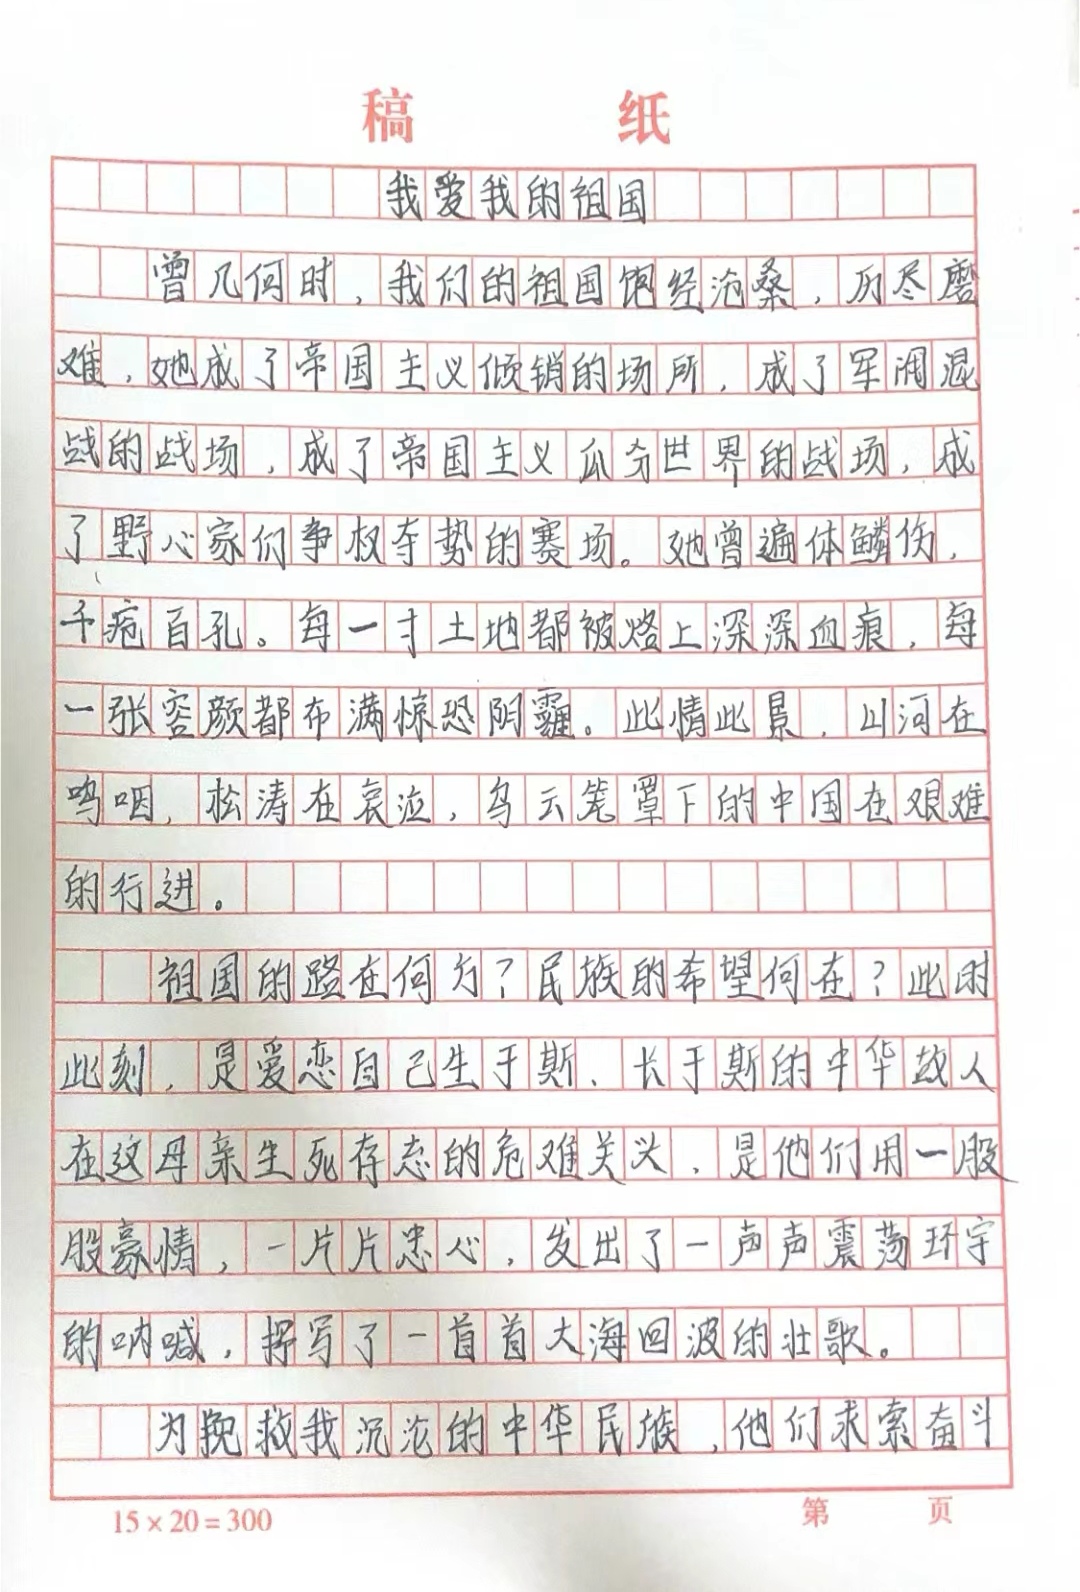 稿 纸
我爱我的祖国
曾几何时，我们的祖国饱经沧桑，历尽磨
难，她成了帝国主义倾销的场所，成了军阀混
战的战场，成了帝国主义瓜分世界的战场，成
了野心家们争权夺势的赛场。她曾遍体鳞伤，
千疮百孔。每一寸土地都被烙上深深血痕，每
一张容颜都布满惊恐阴霾。此情此景，山河在
呜咽，松涛在哀泣，乌云笼罩下的中国在艰难
的行进。
祖国的路在何方？民族的希望何在？此时
此刻，是爱恋自己生于斯、长于斯的中华故人
在这母亲生死存态的危难关头，是他们用一股
股豪情，一片片忠心，发出了一声声震荡环宇
的呐喊，挥写了一首首大海回波的壮歌。
为挽救我沉沦的中华民族，他们求索奋斗
15×20=300 第 页